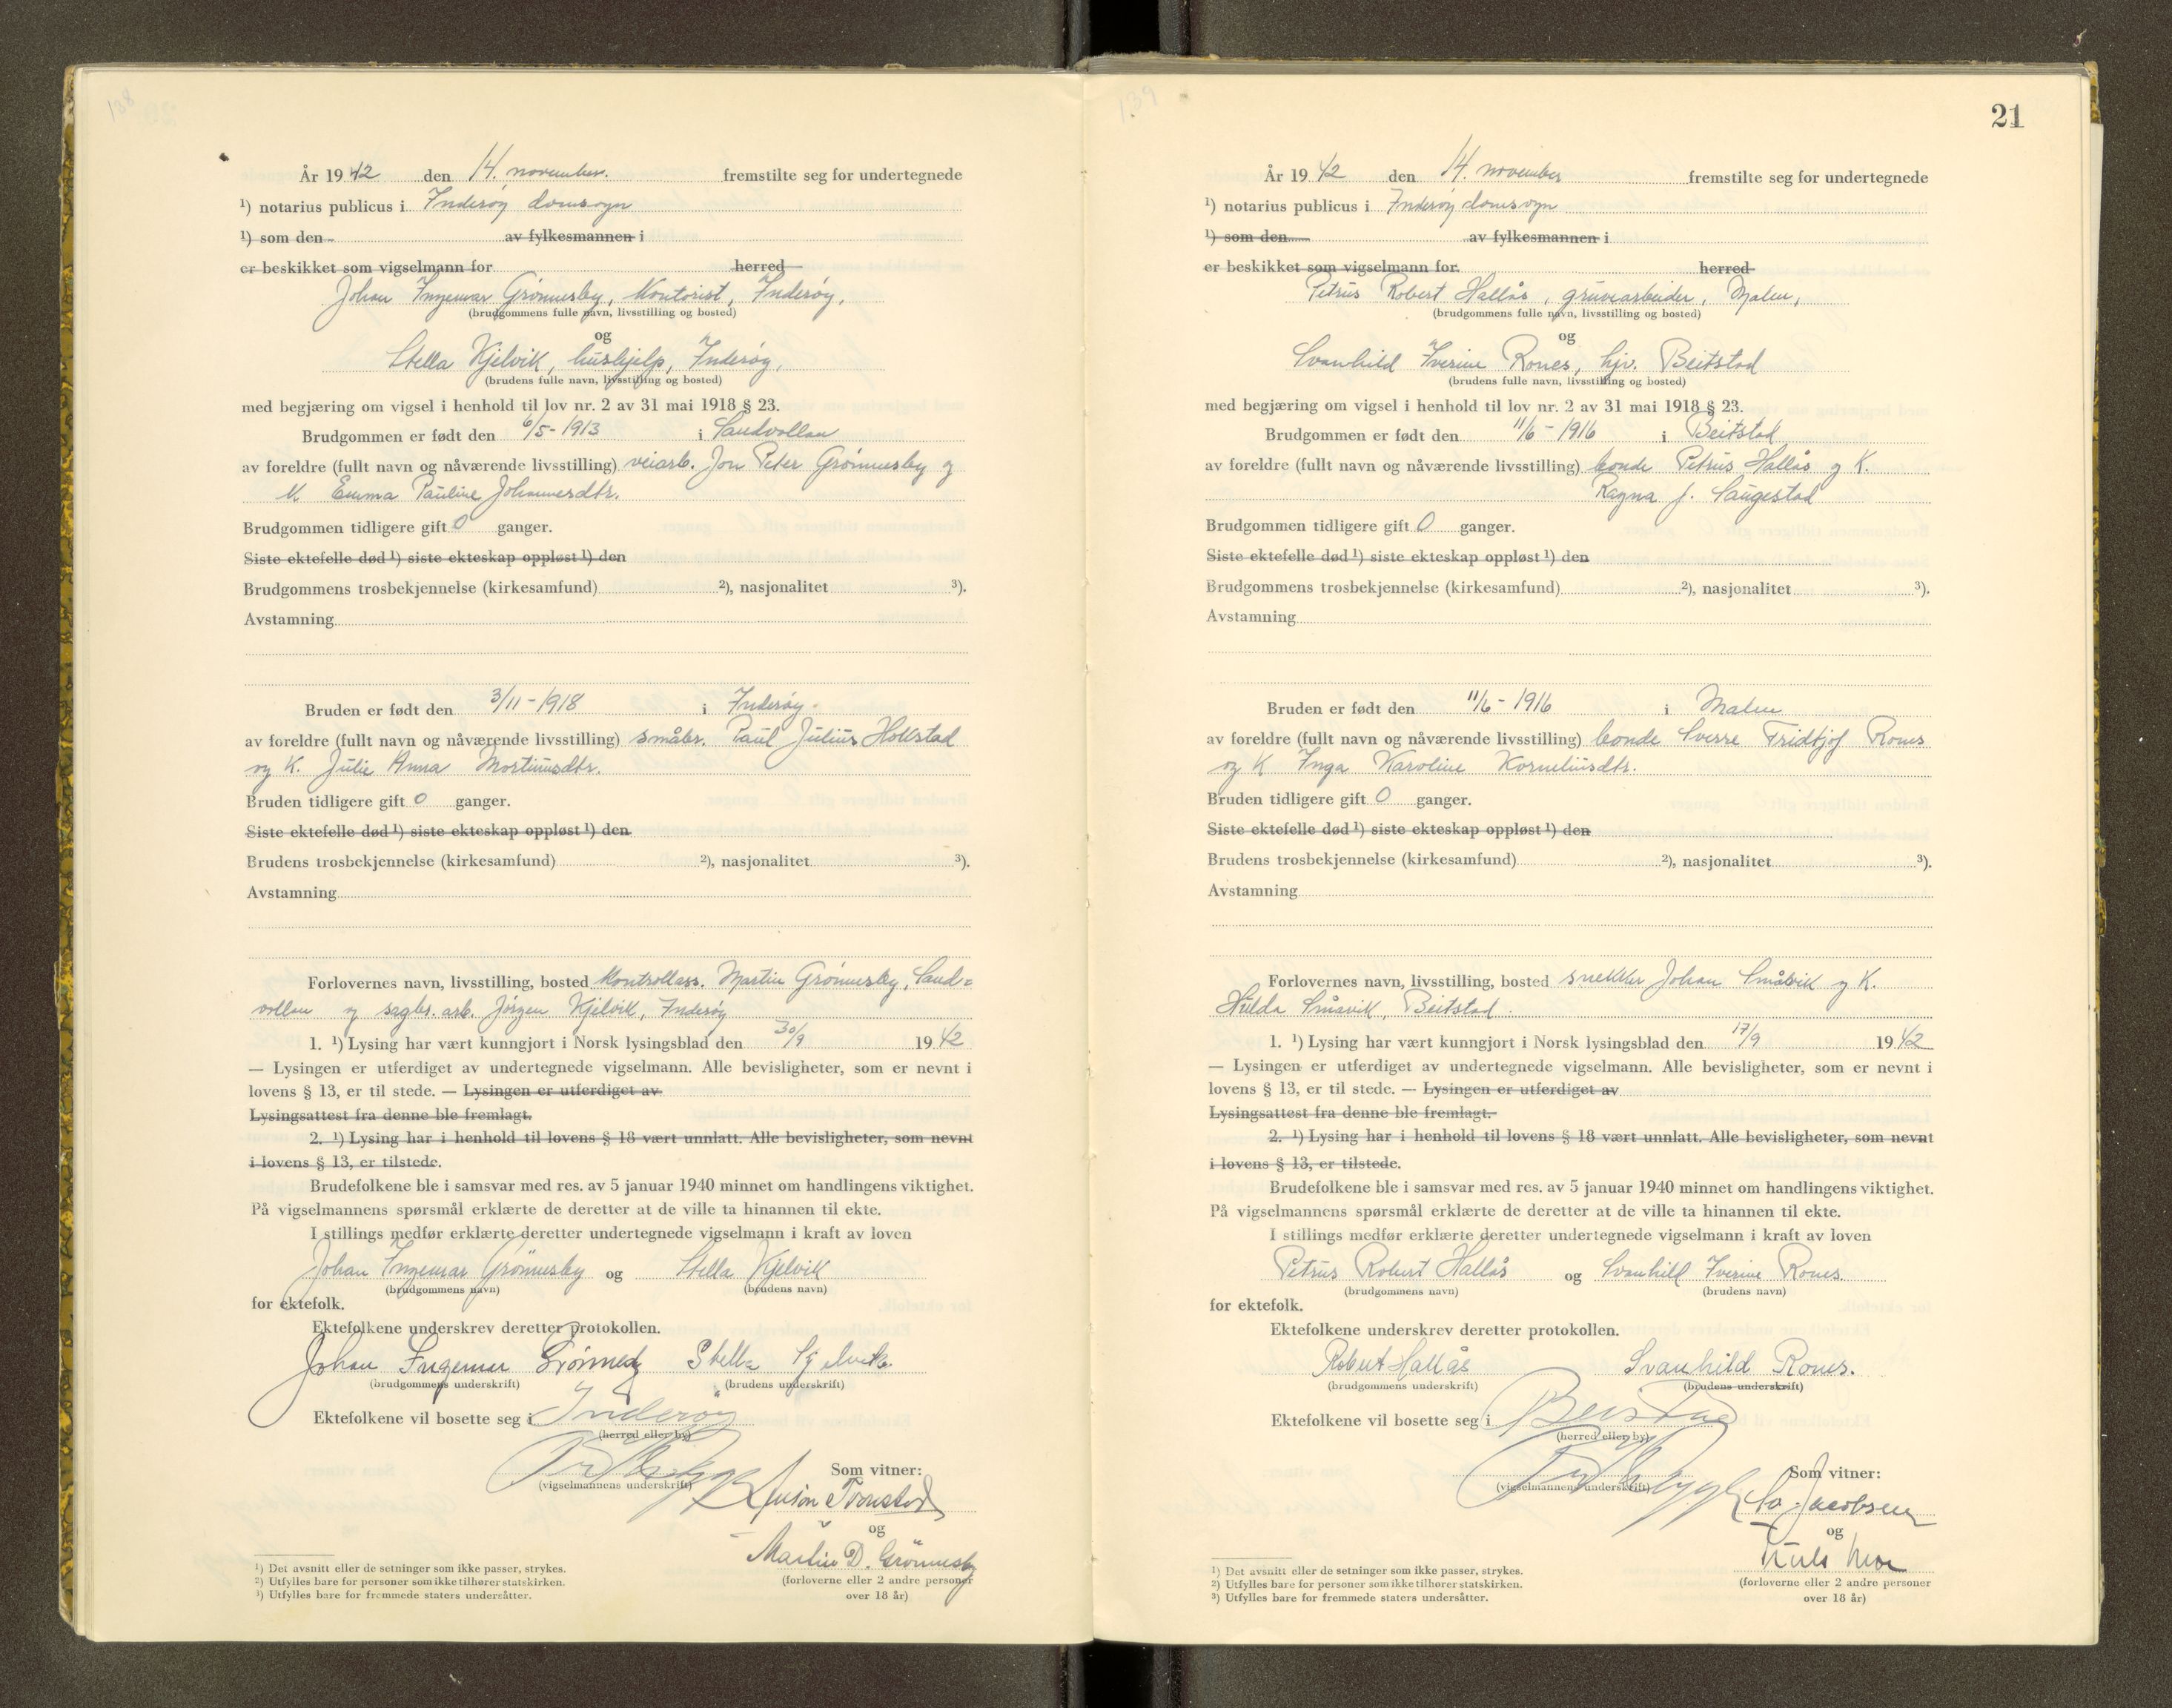 138
År 1942 den 14. november. fremstilte seg for undertegnede
¹) notarius publicus i Inderøy domsogn
¹) som den av fylkesmannen i
er beskikket som vigselmann for herred
Johan Ingemar Grönnesby, Kontorist, Inderøy,
(brudgommens fulle navn, livsstilling og bosted)
og
Stella Kjelvik, hushjelp, Inderøy,
(brudens fulle navn, livsstilling og bosted)
med begjæring om vigsel i henhold til lov nr. 2 av 31 mai 1918 § 23.
Brudgommen er født den 6/5-1913 i Sandvollan
av foreldre (fullt navn og nåværende livsstilling) veiarb. Jon Peter Grönnesby og
K. Emma Pauline Johannesdtr.
Brudgommen tidligere gift 0 ganger.
Siste ektefelle død ¹) siste ekteskap oppløst ¹) den
Brudgommens trosbekjennelse (kirkesamfund) ²), nasjonalitet ³).
Avstamning
Bruden er født den 3/11-1918 i Inderøy.
av foreldre (fullt navn og nåværende livsstilling) småbr. Paul Julius Hollstad
og K. Julie Anna Mortinusdtr.
Bruden tidligere gift 0 ganger.
Siste ektefelle død ¹) siste ekteskap oppløst ¹) den
Brudens trosbekjennelse (kirkesamfund) ²), nasjonalitet ³).
Avstamning
Forlovernes navn, livsstilling, bosted Kontrollass. Martin Grönnesby, Sand=
vollan og sagbr. arb. Jörgen Kjelvik, Inderøy
1. ¹) Lysing har vært kunngjort i Norsk lysingsblad den 30/9 1942
— Lysingen er utferdiget av undertegnede vigselmann. Alle bevisligheter, som er nevnt i
lovens § 13, er til stede. — Lysingen er utferdiget av
Lysingsattest fra denne ble fremlagt.
2. ¹) Lysing har i henhold til lovens § 18 vært unnlatt. Alle bevisligheter, som nevnt
i lovens § 13, er tilstede.
Brudefolkene ble i samsvar med res. av 5 januar 1940 minnet om handlingens viktighet.
På vigselmannens spørsmål erklærte de deretter at de ville ta hinannen til ekte.
I stillings medfør erklærte deretter undertegnede vigselmann i kraft av loven
Johan Ingemar Grönnesby og Stella Kjelvik
(brudgommens navn) (brudens navn)
for ektefolk.
Ektefolkene underskrev deretter protokollen.
Johan Ingemar Grönnesby Stella Kjelvik.
(brudgommens underskrift) (brudens underskrift)
Ektefolkene vil bosette seg i Inderøy
(herred eller by)
Som vitner:
(vigselmannens underskrift)
og
Martin D. Grönnesby
(forloverne eller 2 andre personer
over 18 år)
¹) Det avsnitt eller de setninger som ikke passer, strykes.
²) Utfylles bare for personer som ikke tilhører statskirken.
³) Utfylles bare for fremmede staters undersåtter.
139
21
År 1942 den 14. november fremstilte seg for undertegnede
¹) notarius publicus i Inderøy domsogn
¹) som den av fylkesmannen i
er beskikket som vigselmann for herred
Petrus Robert Hallås, gruvearbeider, Malm,
(brudgommens fulle navn, livsstilling og bosted)
og
Svanhild Iverine Rones, hjv. Beitstad
(brudens fulle navn, livsstilling og bosted)
med begjæring om vigsel i henhold til lov nr. 2 av 31 mai 1918 § 23.
Brudgommen er født den 11/6-1916 i Beitstad
av foreldre (fullt navn og nåværende livsstilling) bonde Petrus Hallås og K.
Ragna J. Saugestad
Brudgommen tidligere gift 0 ganger.
Siste ektefelle død ¹) siste ekteskap oppløst ¹) den
Brudgommens trosbekjennelse (kirkesamfund) ²), nasjonalitet ³).
Avstamning
Bruden er født den 11/6-1916 i Malm
av foreldre (fullt navn og nåværende livsstilling) bonde Sverre Fridtjof Rones
og K Inga Karoline Korneliusdtr.
Bruden tidligere gift 0 ganger.
Siste ektefelle død ¹) siste ekteskap oppløst ¹) den
Brudens trosbekjennelse (kirkesamfund) ²), nasjonalitet ³).
Avstamning
Forlovernes navn, livsstilling, bosted snekker Johan Småvik og K.
Hulda Småvik, Beitstad.
1. ¹) Lysing har vært kunngjort i Norsk lysingsblad den 17/9 1942
— Lysingen er utferdiget av undertegnede vigselmann. Alle bevisligheter, som er nevnt i
lovens § 13, er til stede. — Lysingen er utferdiget av
Lysingsattest fra denne ble fremlagt.
2. ¹) Lysing har i henhold til lovens § 18 vært unnlatt. Alle bevisligheter, som nevnt
i lovens § 13, er tilstede.
Brudefolkene ble i samsvar med res. av 5 januar 1940 minnet om handlingens viktighet.
På vigselmannens spørsmål erklærte de deretter at de ville ta hinannen til ekte.
I stillings medfør erklærte deretter undertegnede vigselmann i kraft av loven
Petrus Robert Hallås og Svanhild Iverine Rones.
(brudgommens navn) (brudens navn)
for ektefolk.
Ektefolkene underskrev deretter protokollen.
Robert Hallås Svanhild Rones.
(brudgommens underskrift) (brudens underskrift)
Ektefolkene vil bosette seg i Beistad
(herred eller by)
Som vitner:
(vigselmannens underskrift)
Jacobsen
og
(forloverne eller 2 andre personer
over 18 år)
¹) Det avsnitt eller de setninger som ikke passer, strykes.
²) Utfylles bare for personer som ikke tilhører statskirken.
³) Utfylles bare for fremmede staters undersåtter.